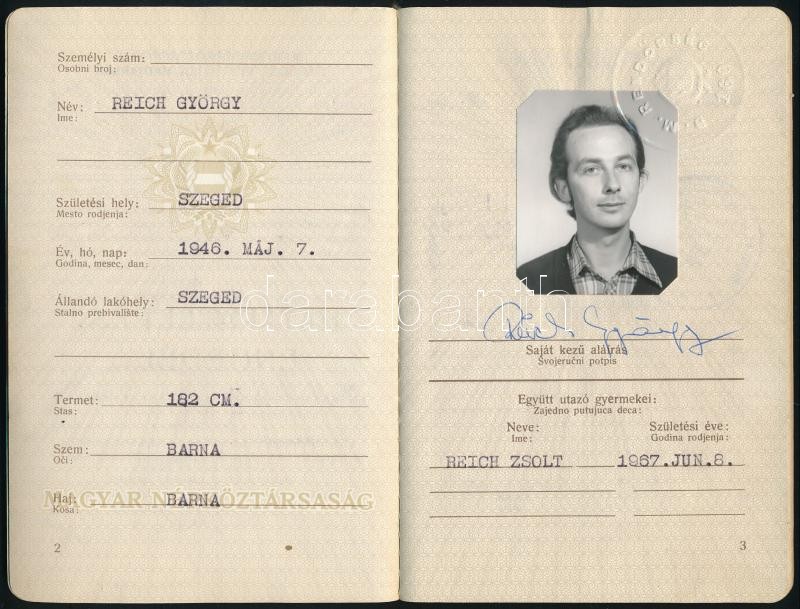 Személyi szám:
Osobni broj:
Név: REICH GYÖRGY
Ime:
Születési hely: SZEGED
Mesto rodjenja:
Év, hó, nap: 1946. MÁJ. 7.
Godina, mesec, dan:
Állandó lakóhely: SZEGED
Stalno prebivalište:
Termet: 182 CM.
Stas:
Szem: BARNA
Oči:
MAGYAR NÉPKÖZTÁRSASÁG
Haj: BARNA
Kosa:
2
darabanth
Reich György
Saját kezű aláírás
Svojeručni potpis
Együtt utazó gyermekei:
Zajedno putujuca deca:
Neve: Születési éve:
Ime: Godina rodjenja:
REICH ZSOLT 1967.JUN.8.
3